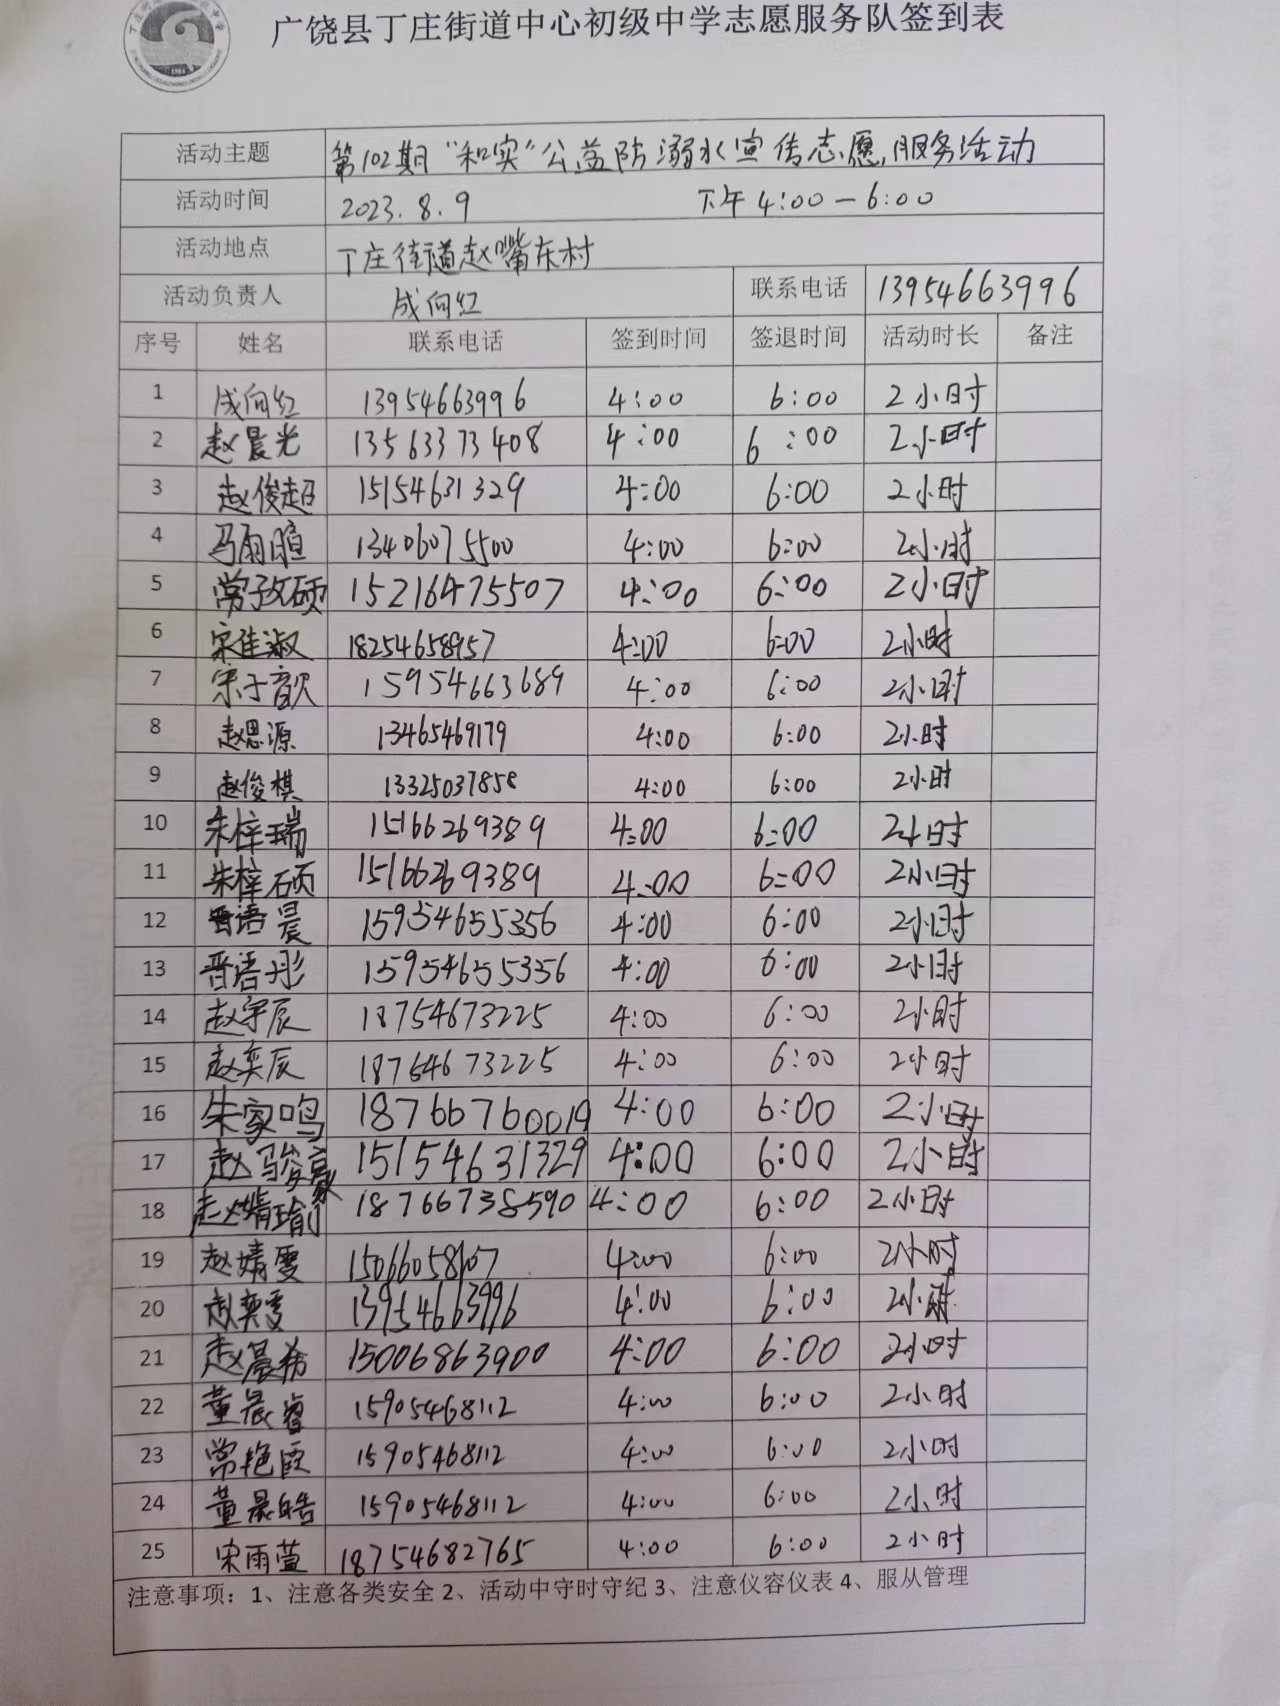 广饶县丁庄街道中心初级中学志愿服务队签到表
活动主题 第102期“和实”公益防溺水宣传志愿服务活动
活动时间 2023.8.9 下午4:00—6:00
活动地点 丁庄街道赵嘴东村
活动负责人 成向红 联系电话 13954663996
序号 姓名 联系电话 签到时间 签退时间 活动时长 备注
1 成向红 13954663996 4:00 6:00 2小时
2 赵晨光 13563373408 4:00 6:00 2小时
3 赵俊超 15154631329 4:00 6:00 2小时
4 马雨暄 13406075500 4:00 6:00 2小时
5 常孜硕 15216475507 4:00 6:00 2小时
6 宋佳淑 18254658957 4:00 6:00 2小时
7 宋于歆 15954663689 4:00 6:00 2小时
8 赵思源 13465469179 4:00 6:00 2小时
9 赵俊棋 13325037858 4:00 6:00 2小时
10 朱梓瑞 15166269389 4:00 6:00 2小时
11 朱梓硕 15166269389 4:00 6:00 2小时
12 晋语晨 15954655356 4:00 6:00 2小时
13 晋语彤 15954655356 4:00 6:00 2小时
14 赵宇辰 18754673225 4:00 6:00 2小时
15 赵奕辰 18754673225 4:00 6:00 2小时
16 朱家鸣 18766760019 4:00 6:00 2小时
17 赵骏豪 15154631329 4:00 6:00 2小时
18 赵婧瑜 18766738590 4:00 6:00 2小时
19 赵婧雯 15066058107 4:00 6:00 2小时
20 赵奕雯 13954663996 4:00 6:00 2小时
21 赵晨希 15006863900 4:00 6:00 2小时
22 董晨睿 15905468112 4:00 6:00 2小时
23 常艳霞 15905468112 4:00 6:00 2小时
24 董晨皓 15905468112 4:00 6:00 2小时
25 宋雨萱 18754682765 4:00 6:00 2小时
注意事项：1、注意各类安全 2、活动中守时守纪 3、注意仪容仪表 4、服从管理